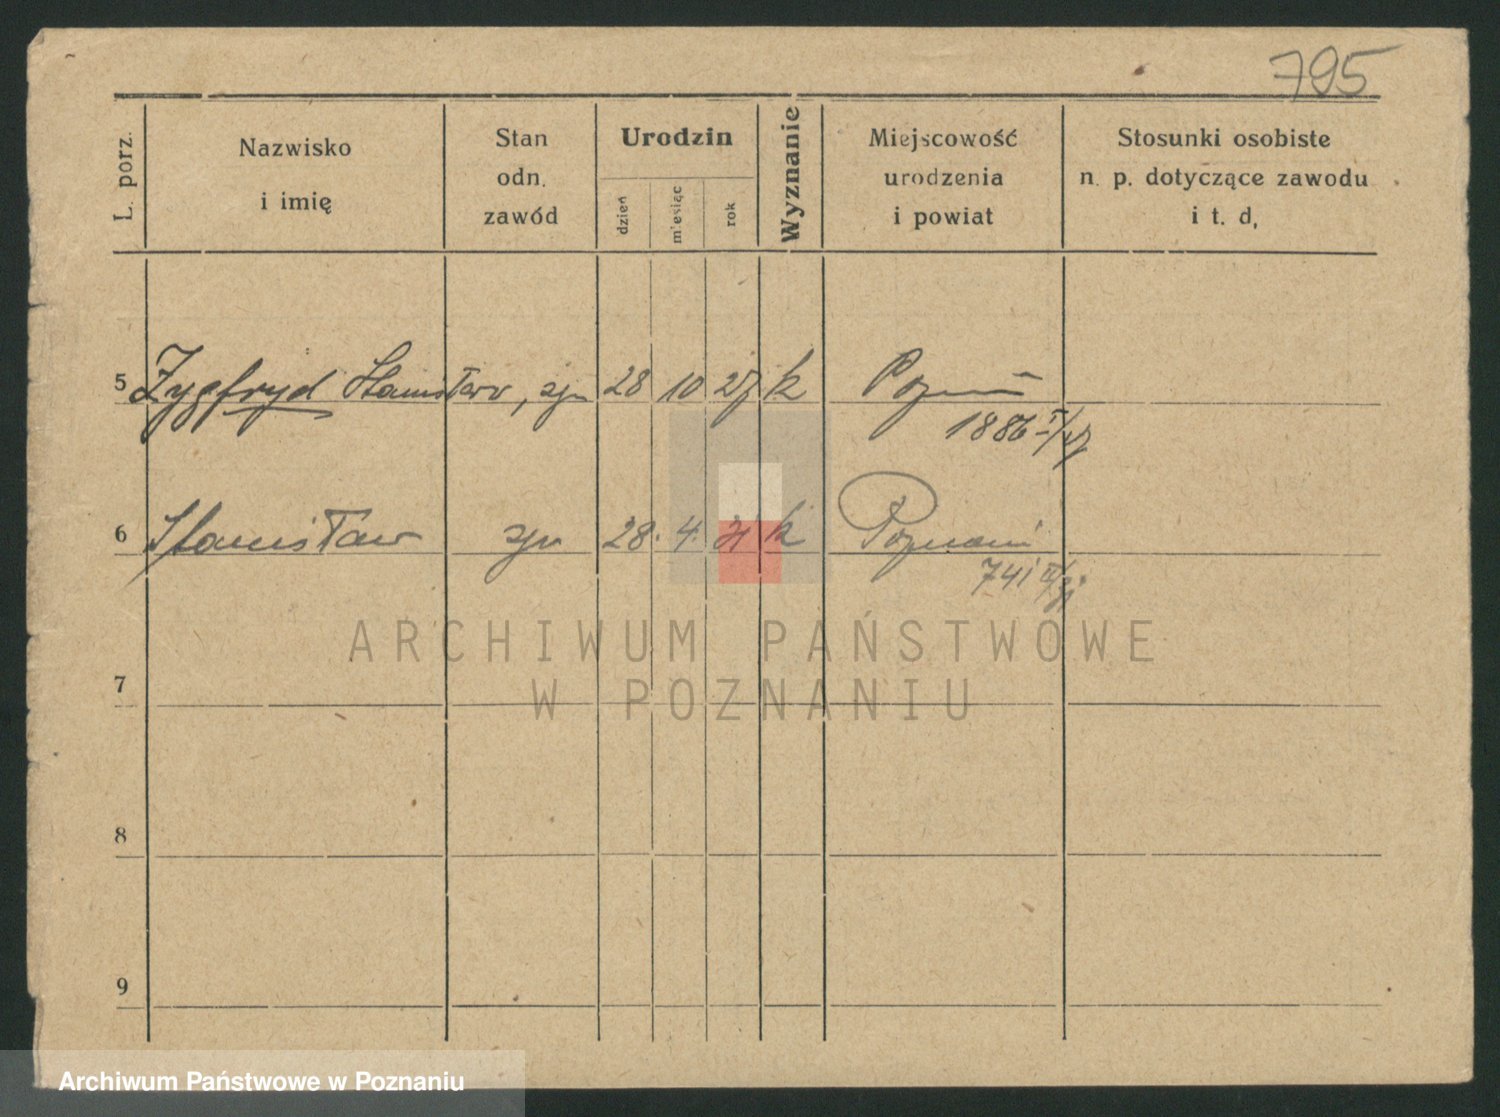 795
L. porz.
Nazwisko
i imię
Stan
odn.
zawód
Urodzin
dzień
m'esiąc
rok
Wyznanie
Miejscowość
urodzenia
i powiat
Stosunki osobiste
n. p. dotyczące zawodu
i t. d,
5 Zygfryd Stanisław, syn 28 10 27 k Poznań
1886 I/27
6 Stanisław syn 28. 4. 31 k Poznań
741 II/31
ARCHIWUM PAŃSTWOWE
W POZNANIU
7
8
9
Archiwum Państwowe w Poznaniu